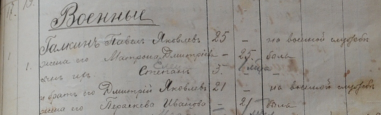 Военные
1. Галкинъ Павелъ Яковлевъ 25 — по военной службѣ
жена его Матрона Дмитріева — 25
сынъ ихъ Степанъ 5
братъ его Дмитрій Яковлевъ 21 — по военной службѣ
жена его Параскева Иванова — 21